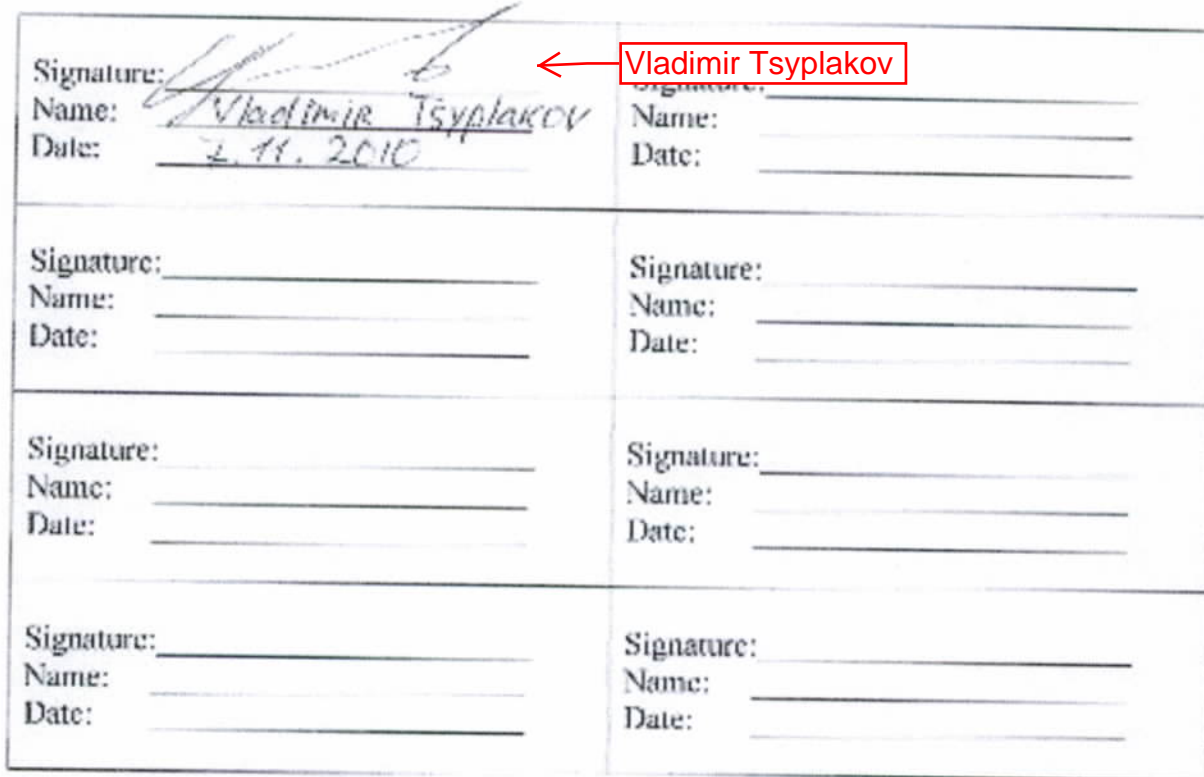 Signature:
Name: Vladimir Tsyplakov
Date: 7.11.2010
Vladimir Tsyplakov
Signature:
Name:
Date:
Signature:
Name:
Date:
Signature:
Name:
Date:
Signature:
Name:
Date:
Signature:
Name:
Date:
Signature:
Name:
Date:
Signature:
Name:
Date: